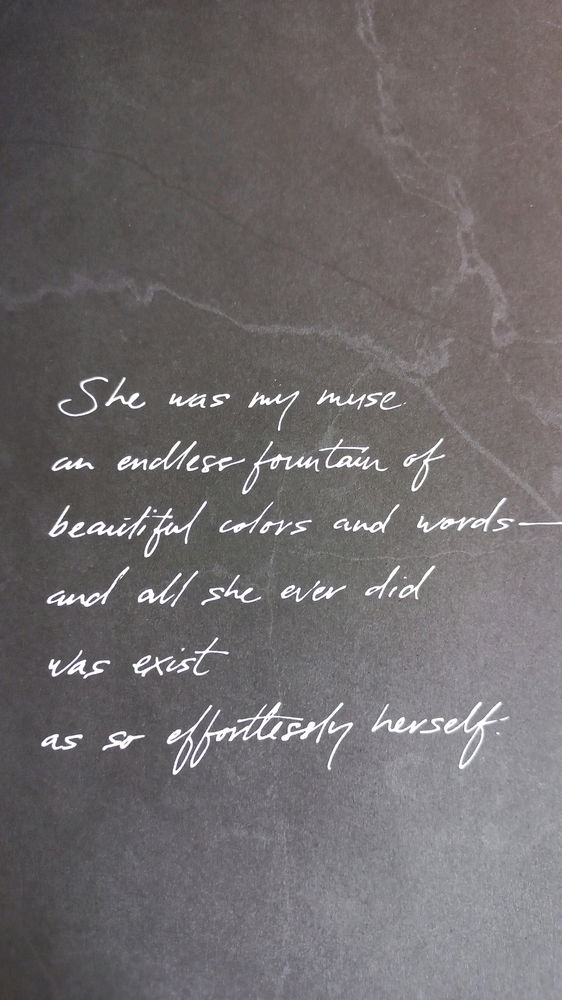 She was my muse
an endless fountain of
beautiful colors and words—
and all she ever did
was exist
as so effortlessly herself.